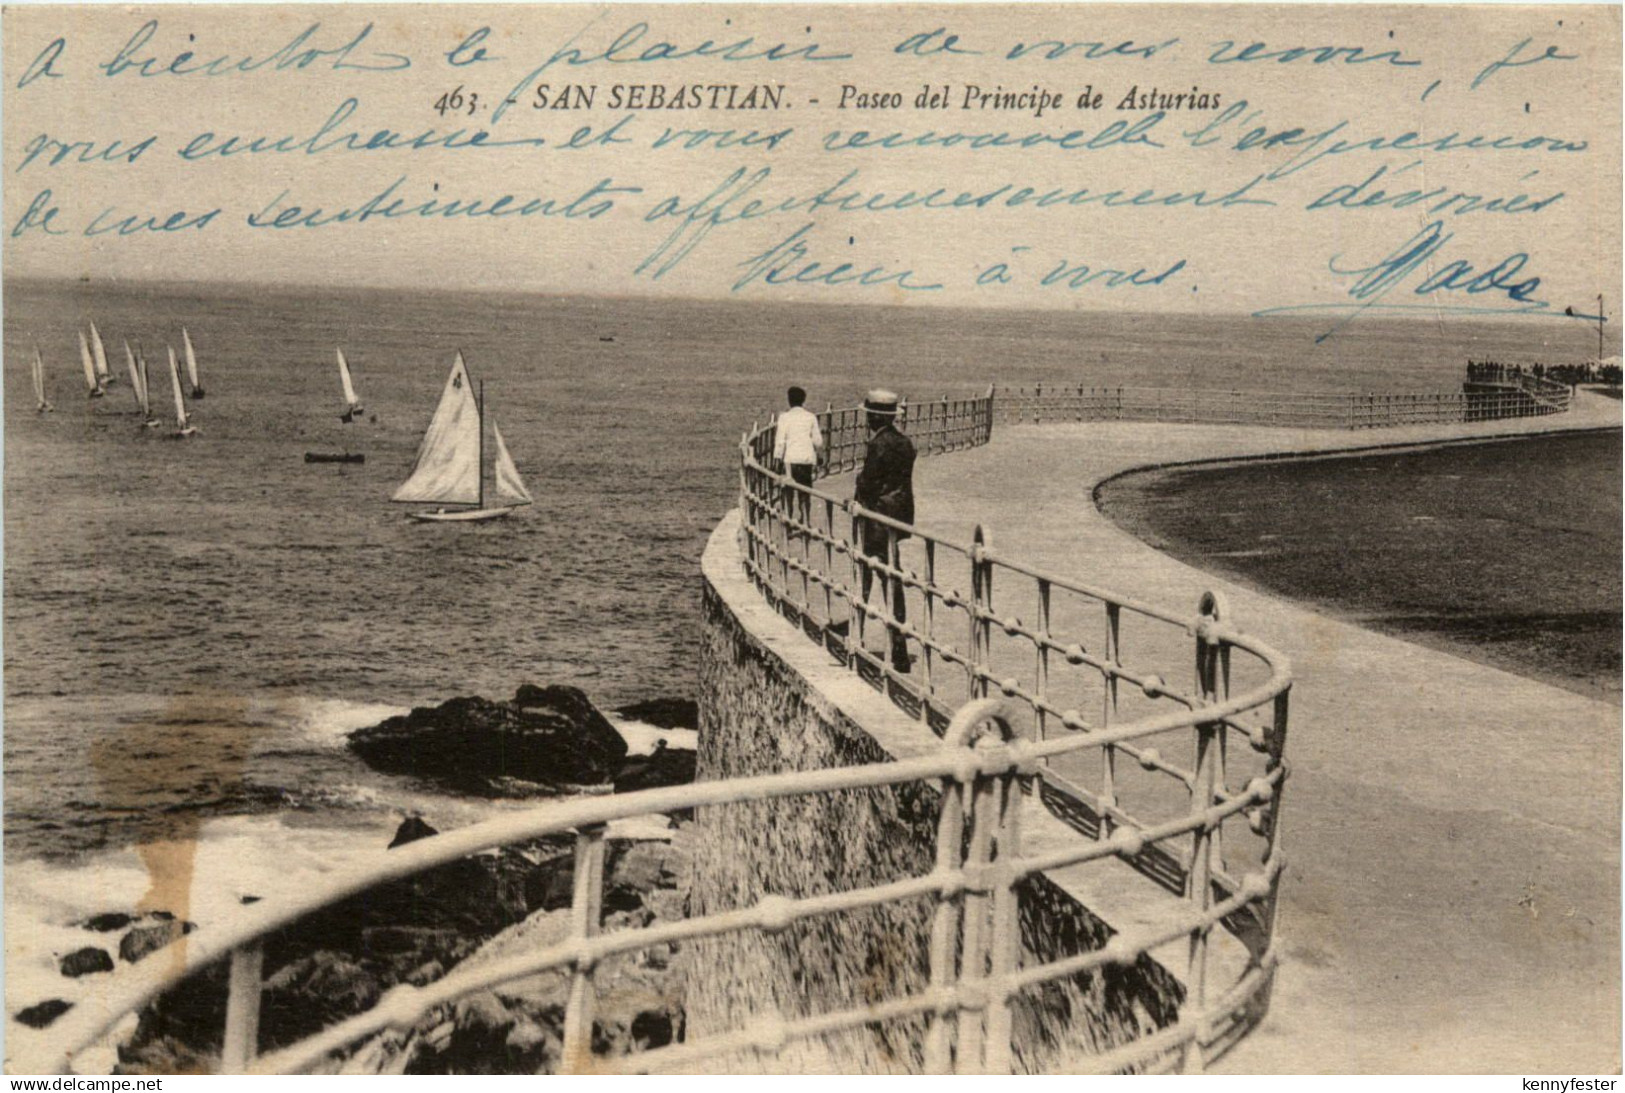 A bientôt le plaisir de vous revoir, je
463. - SAN SEBASTIAN. - Paseo del Principe de Asturias
vous embrasse et vous renouvelle l'expression
de mes sentiments affectueusement dévoués
Bien à vous. Made
4
www.delcampe.net
kennyfester